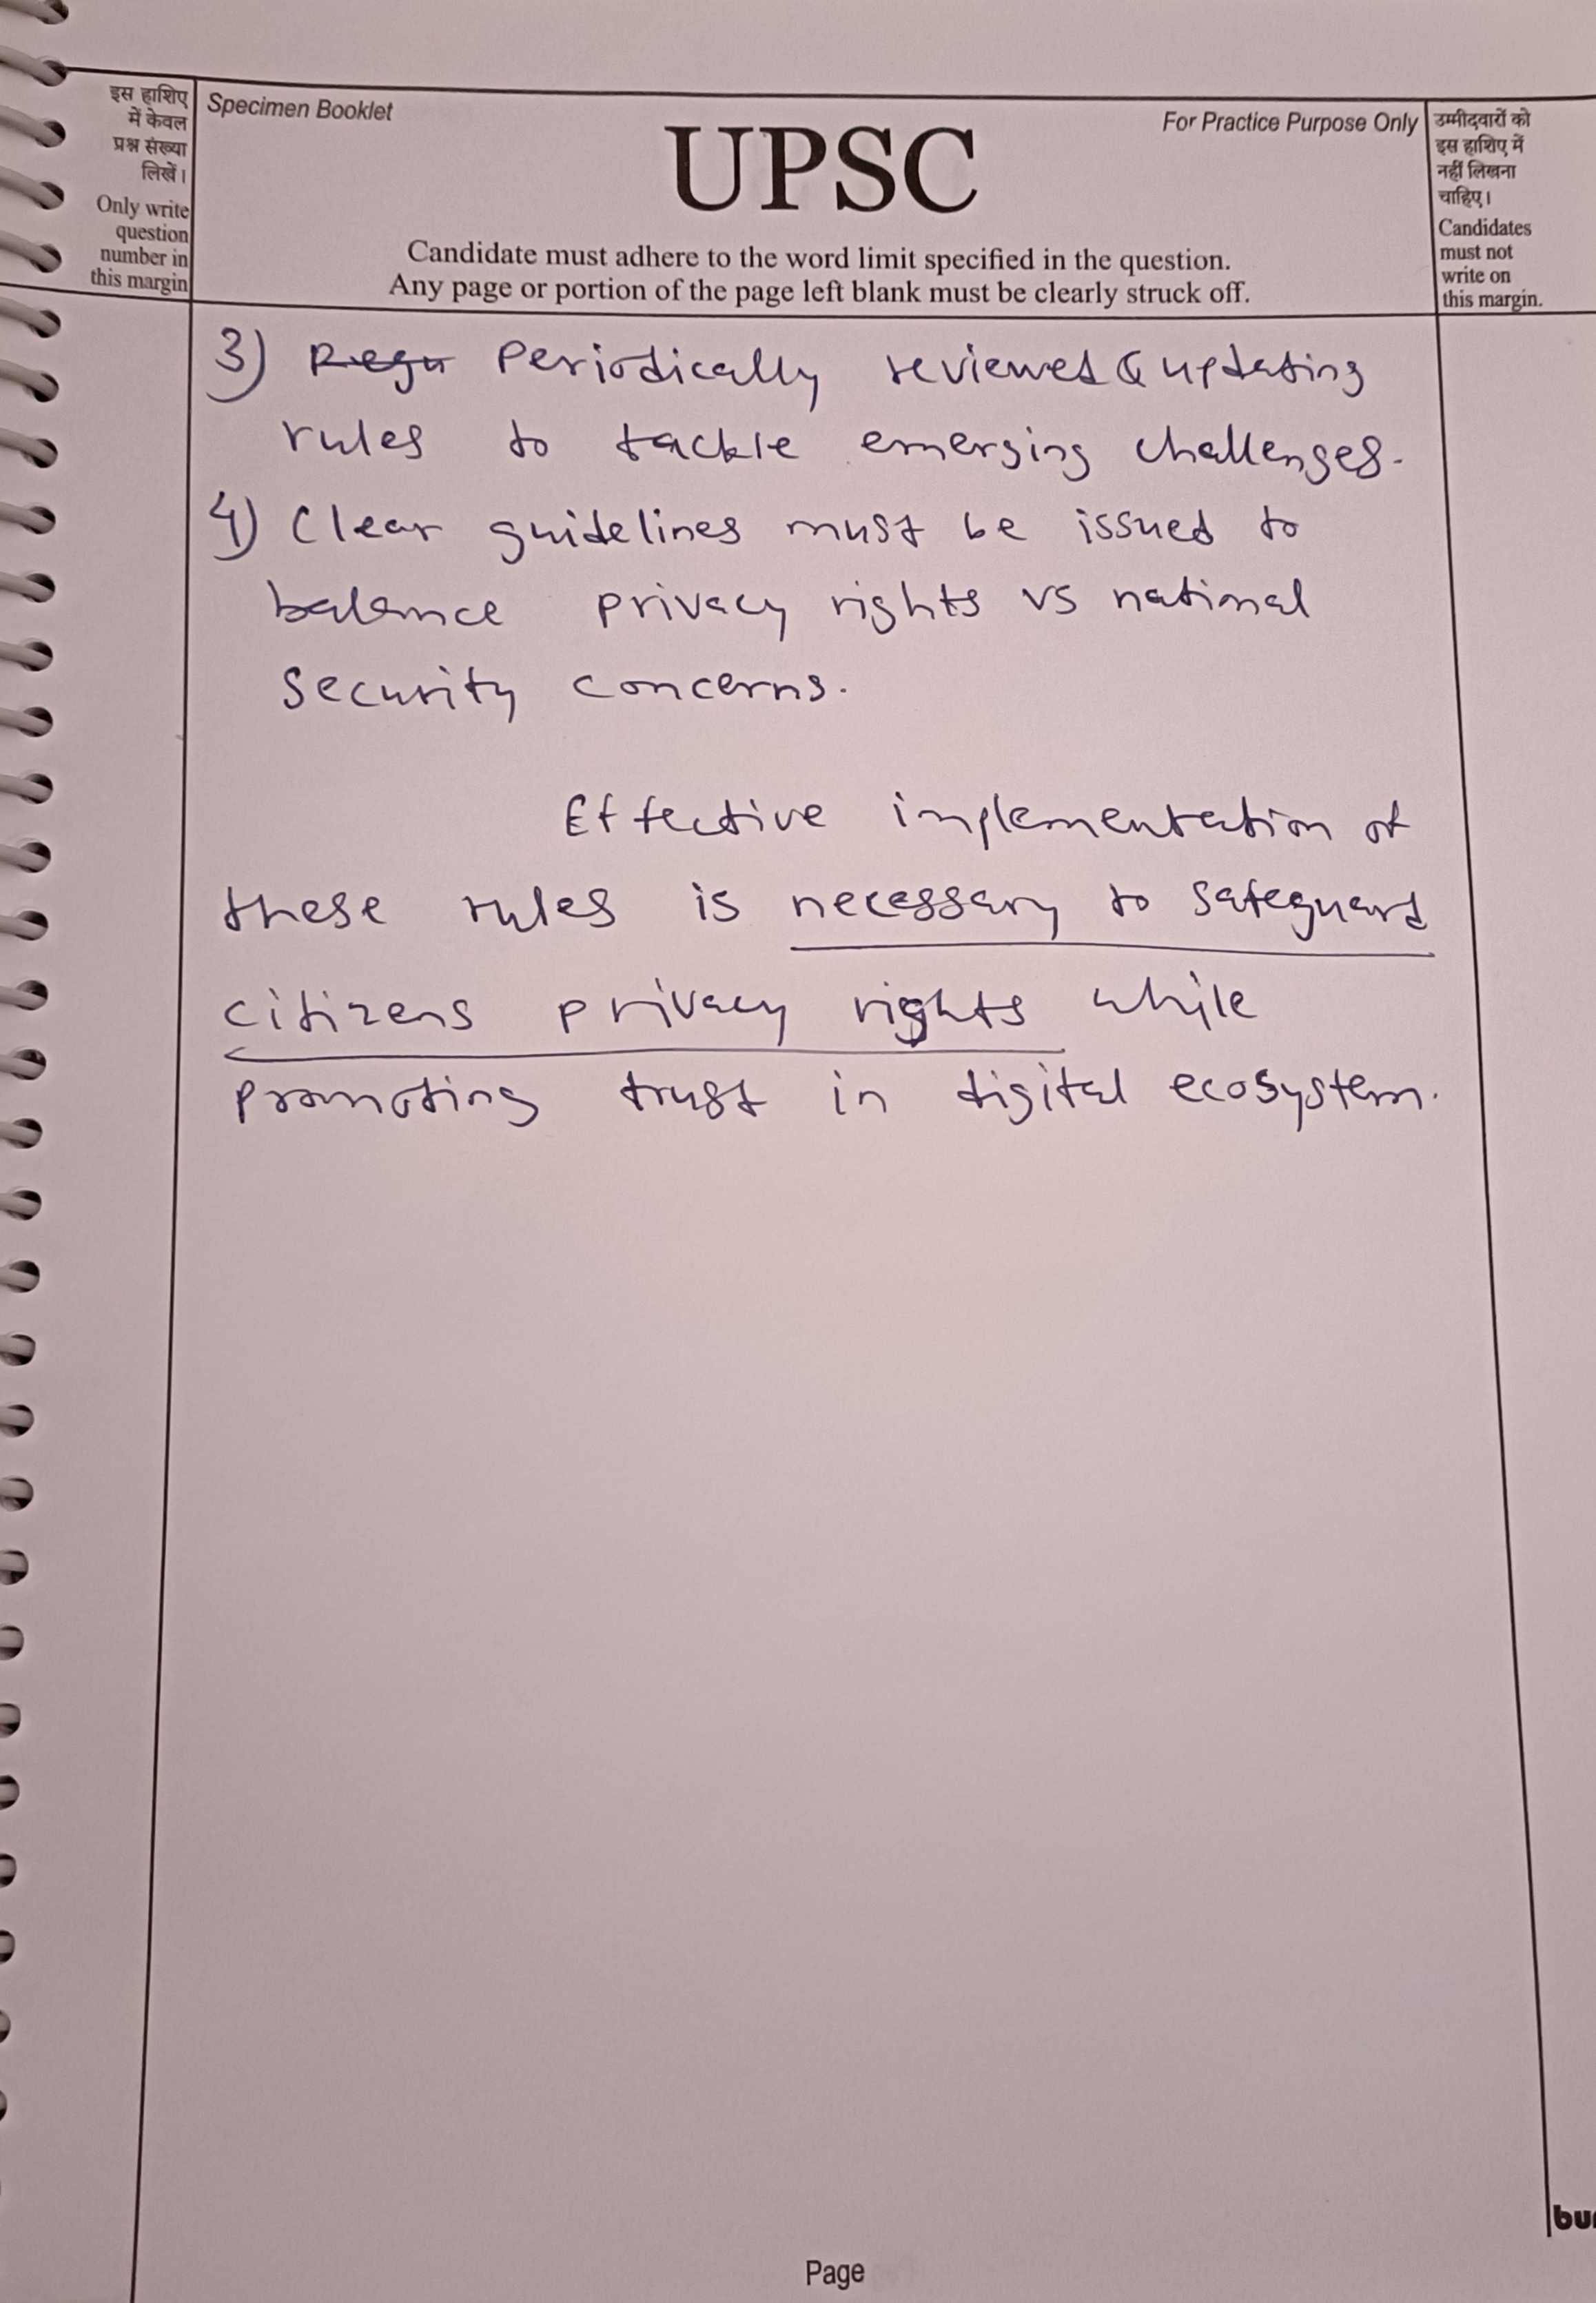 इस हाशिए
में केवल
प्रश्न संख्या
लिखें।
Only write
question
number in
this margin
Specimen Booklet
UPSC
For Practice Purpose Only
Candidate must adhere to the word limit specified in the question.
Any page or portion of the page left blank must be clearly struck off.
उम्मीदवारों को
इस हाशिए में
नहीं लिखना
चाहिए।
Candidates
must not
write on
this margin.
3) Regu Periodically reviewed & updating
rules to tackle emerging challenges.
4) Clear guidelines must be issued to
balance privacy rights vs national
security concerns.
Effective implementation of
these rules is necessary to safeguard
citizens privacy rights while
promoting trust in digital ecosystem.
Page